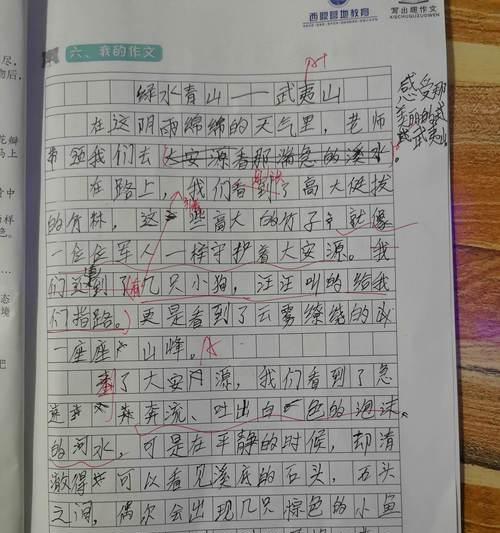 西鄂营地教育
写出理作文
XIECHUGUZUOWEN
六、我的作文
绿水青山——武夷山
在这阴雨绵绵的天气里，老师
带领我们去大安源看那湍急的溪水。
感受那
美丽的武夷山
在路上，我们看到了高大挺拔
的竹林，这些高大的竹子就像
一位位军人一样守护着大安源。我
们到了几只小狗，汪汪叫的给我
们指路。更是看到了云雾缭绕的
一座座山峰。
到了大安源，我们看到了急
奔流、吐出白色的泡沫
的河水，可是在平静的时候，却清
澈得可以看见溪底的石头，石头
之间，偶尔会出现几只棕色的小鱼
尽，
物后，
花瓣
马上
背中
两样
色。
态
境
吧